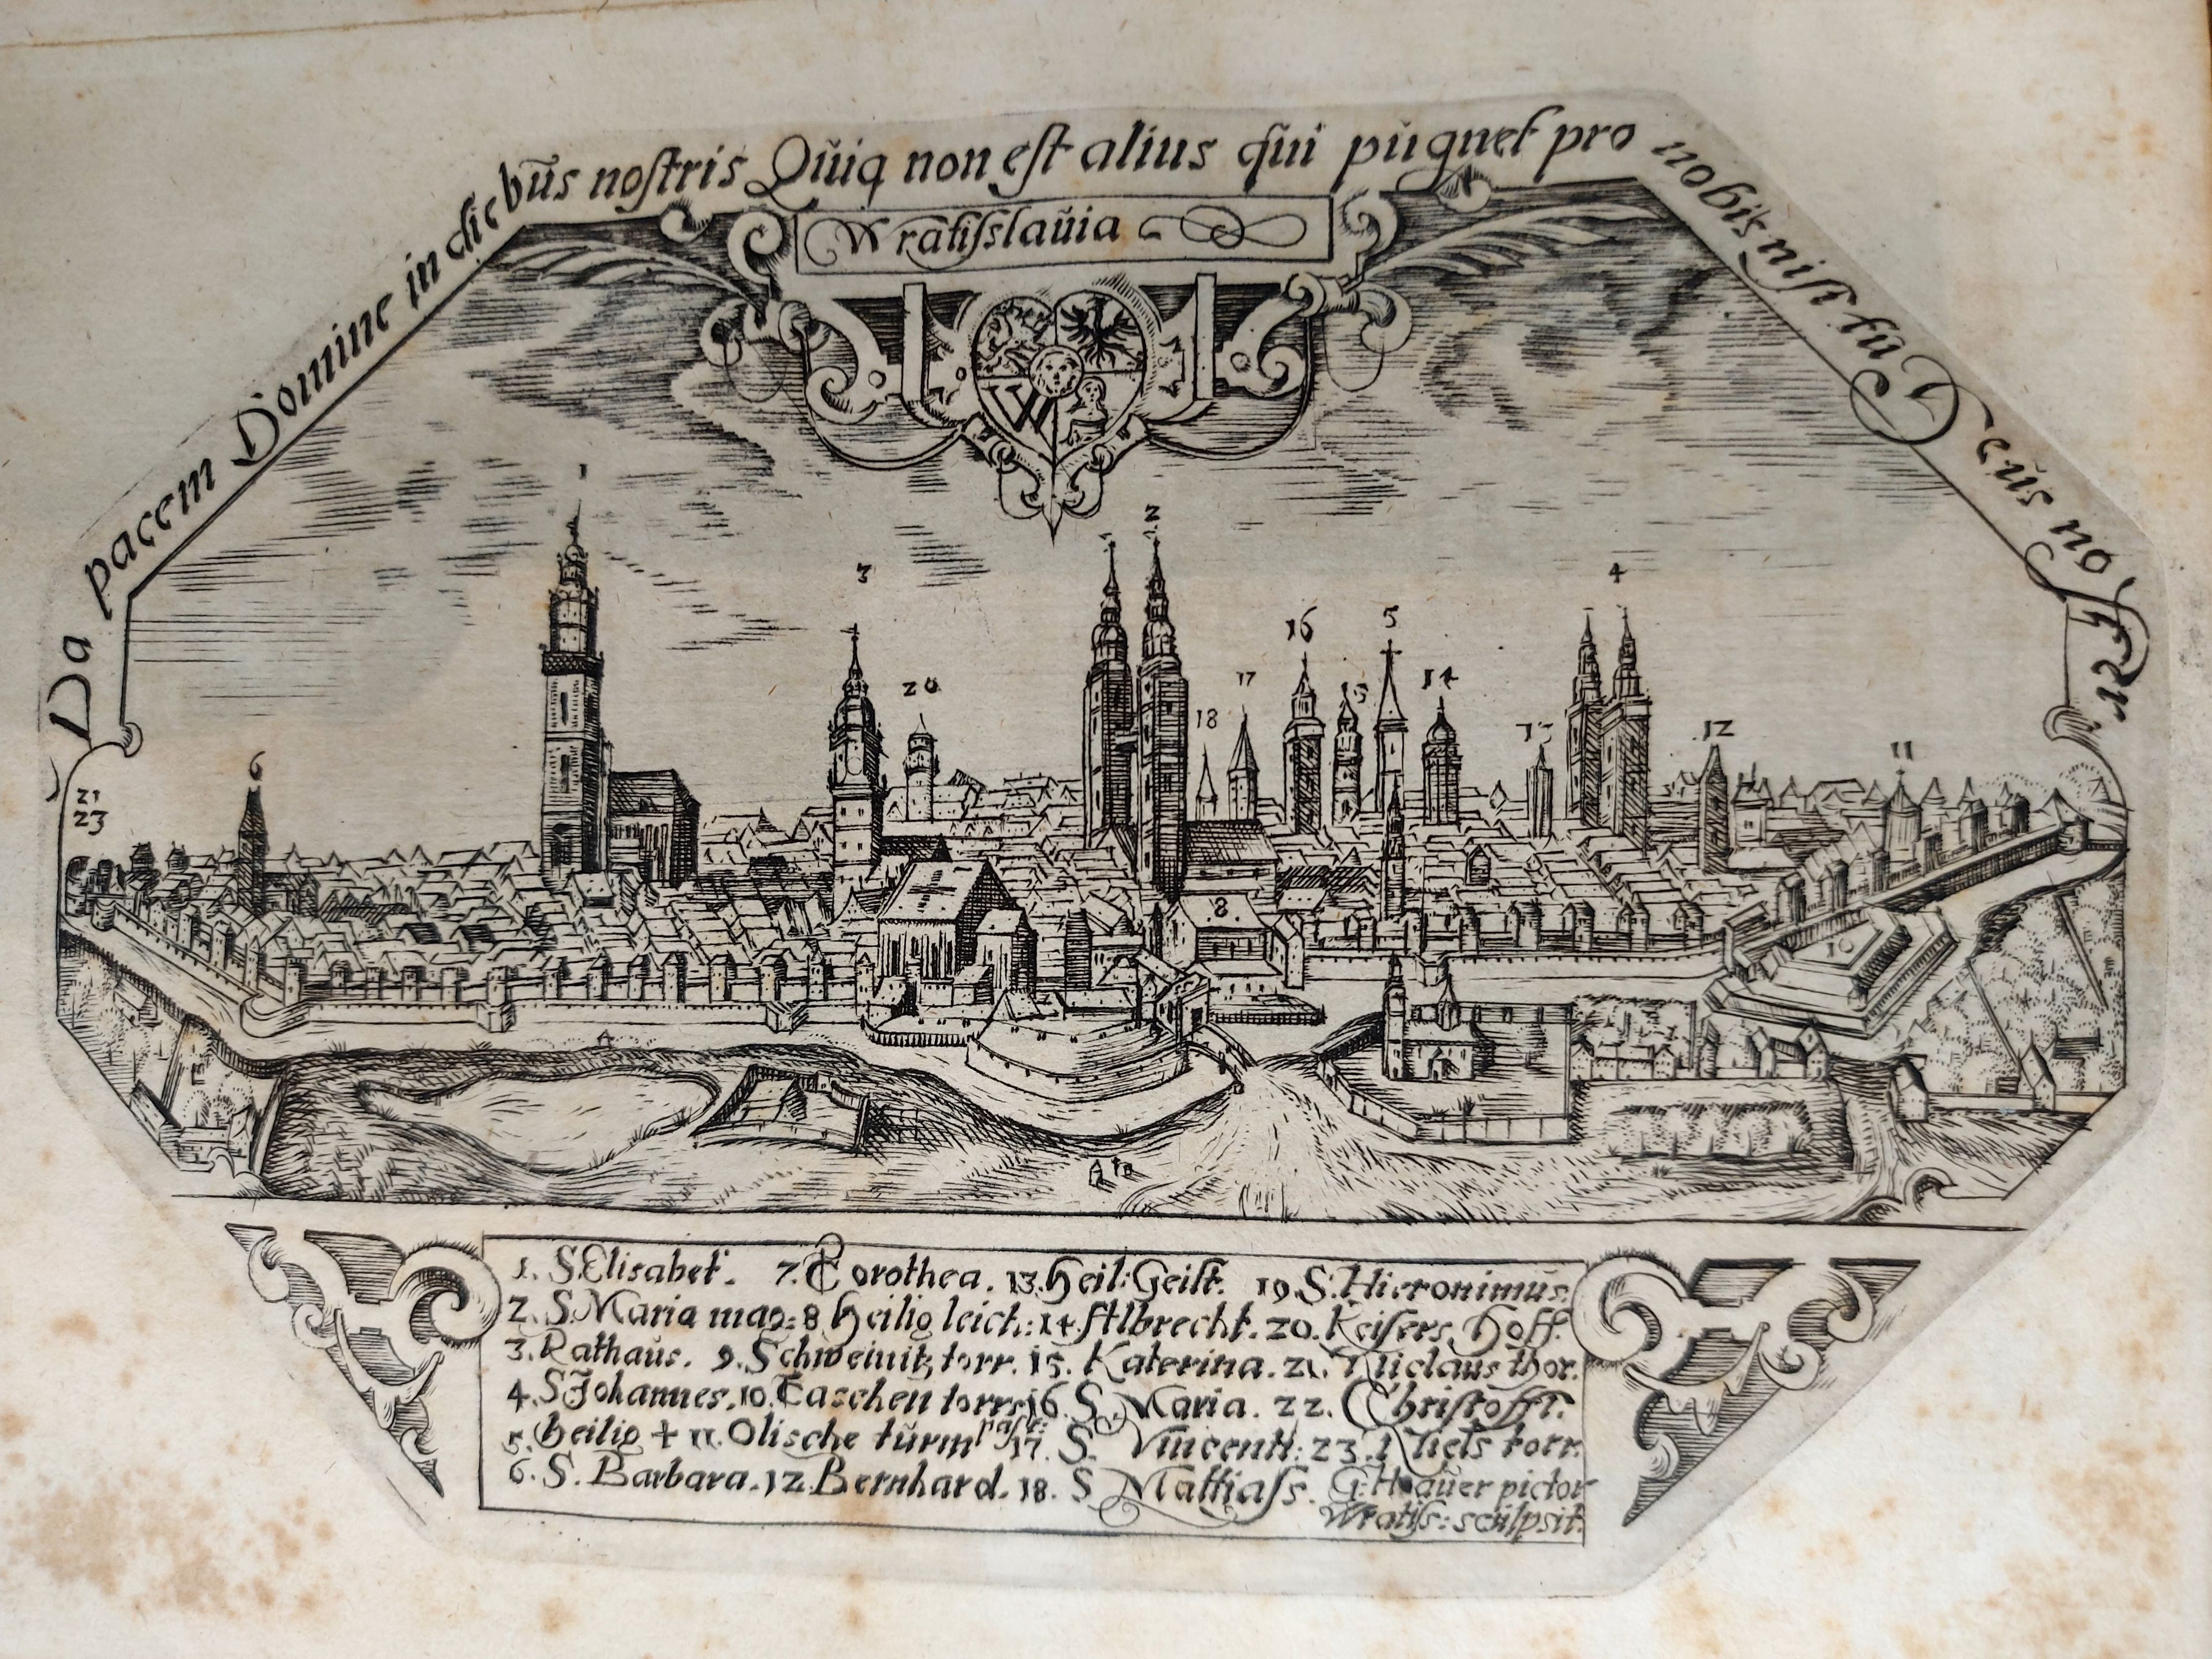 Da pacem Domine in diebũs nostris Qũiq non est alius qũi pũgnet pro nobis nisi tũ Deũs noster
Wratisslaũia
W
1
2
3
20
4
16
5
17
15
14
18
13
12
11
6
21
23
8
10
A
1. S. Elisabet. 7. Dorothea. 13. Heil: Geist. 19. S: Hieronimũs.
2. S. Maria mag: 8 Heilig leich: 14 Albrecht. 20. Keisers Hoff.
3. Rathaũs. 9. Schweinitz torr. 15. Katerina. 21. Niclaus thor.
4. S Johannes. 10. Taschen torr 16. S. Maria. 22. Christoffr.
5. Heilig + 11. Olische tũrm pasti: 17. S. Vincenti: 23. Niels torr.
6. S. Barbara. 12. Bernhard. 18. S Mattiass. G: Haũer pictor
Wratiss: scũlpsit.